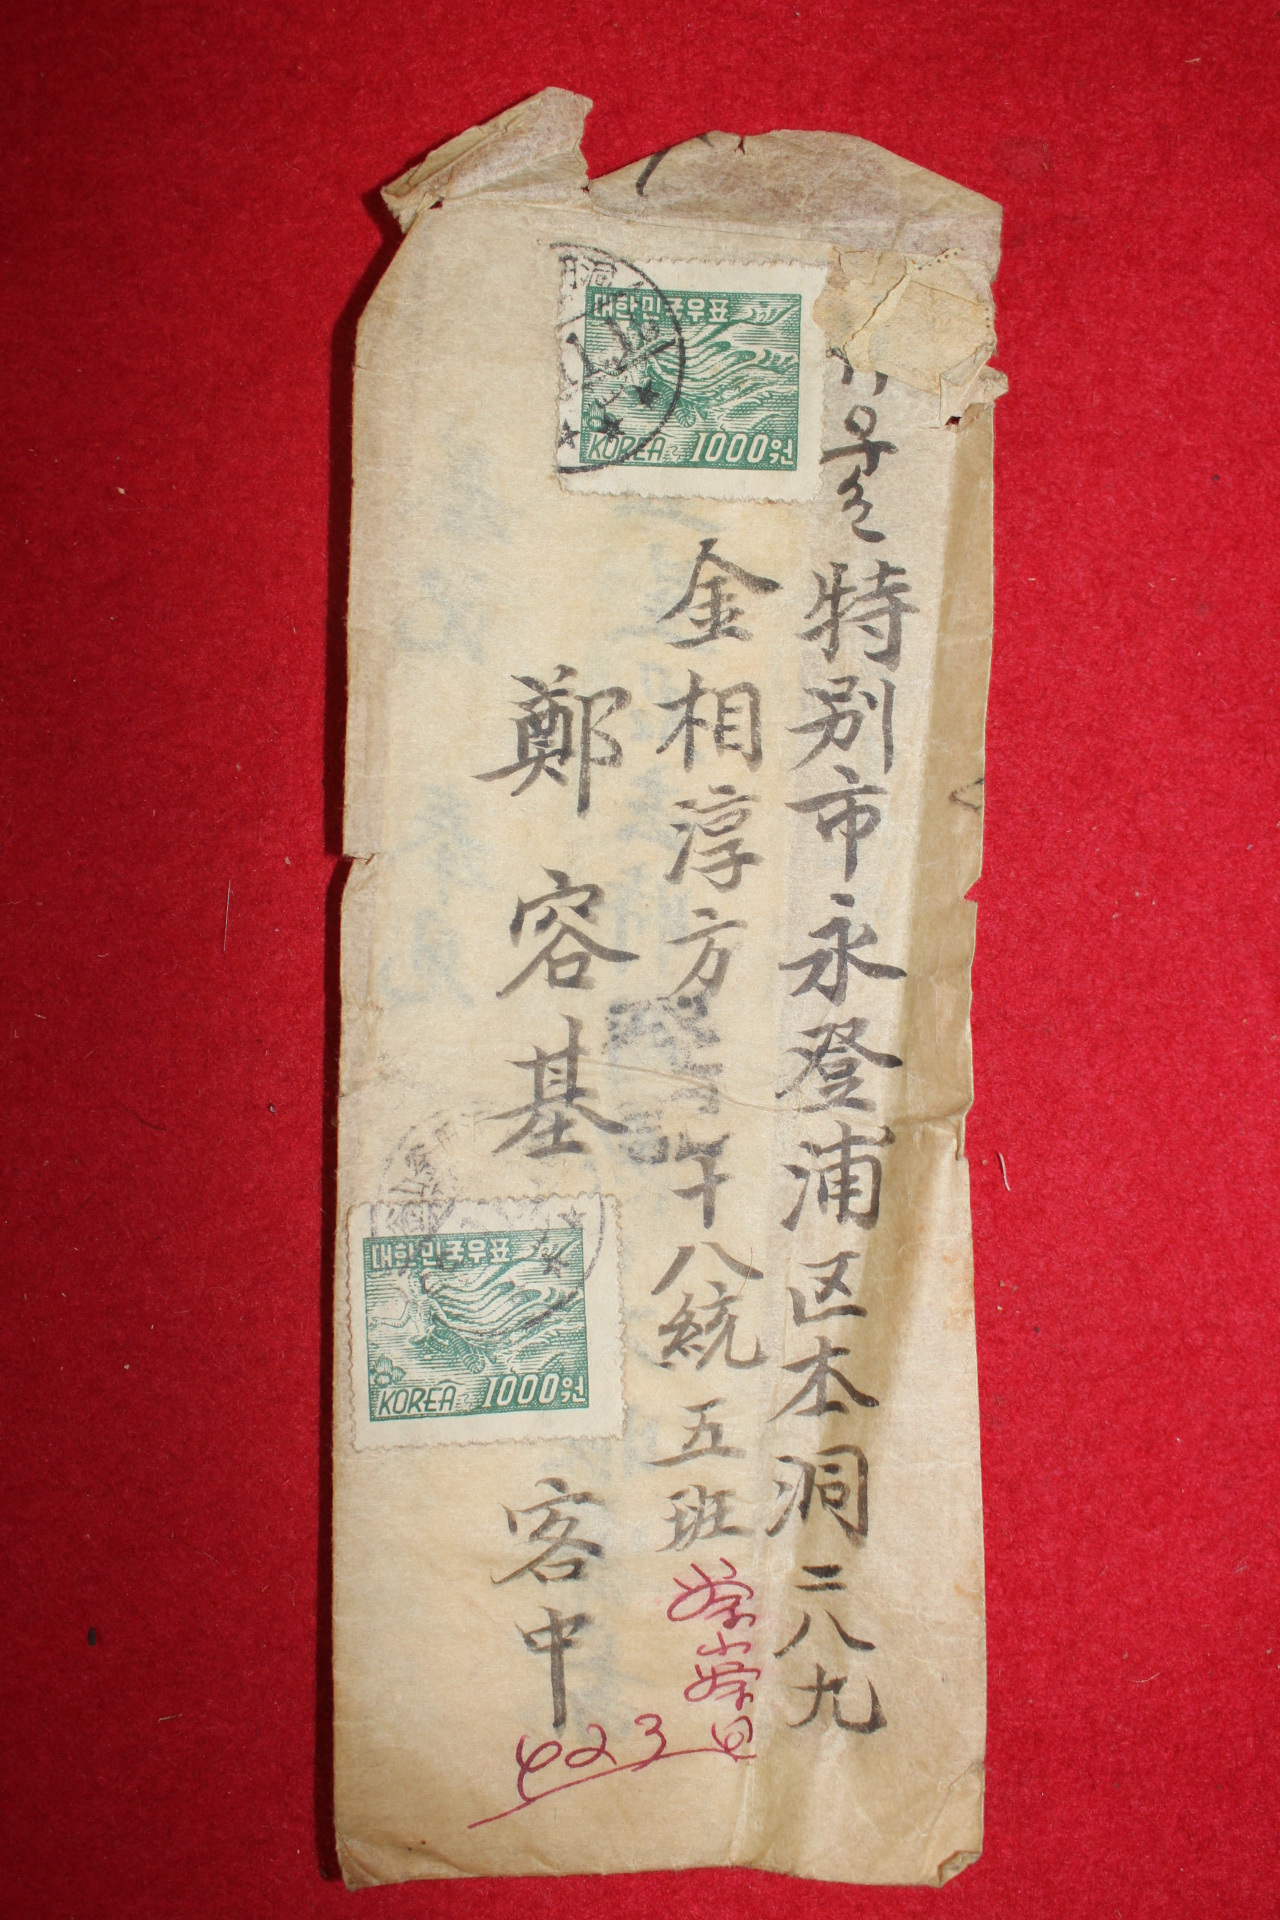 서울 特別市 永登浦区 本洞 二八九
金相淳方 十八統 五班
鄭容基 客中
대한민국우표
KOREA 1000원
대한민국우표
KOREA 1000원
423